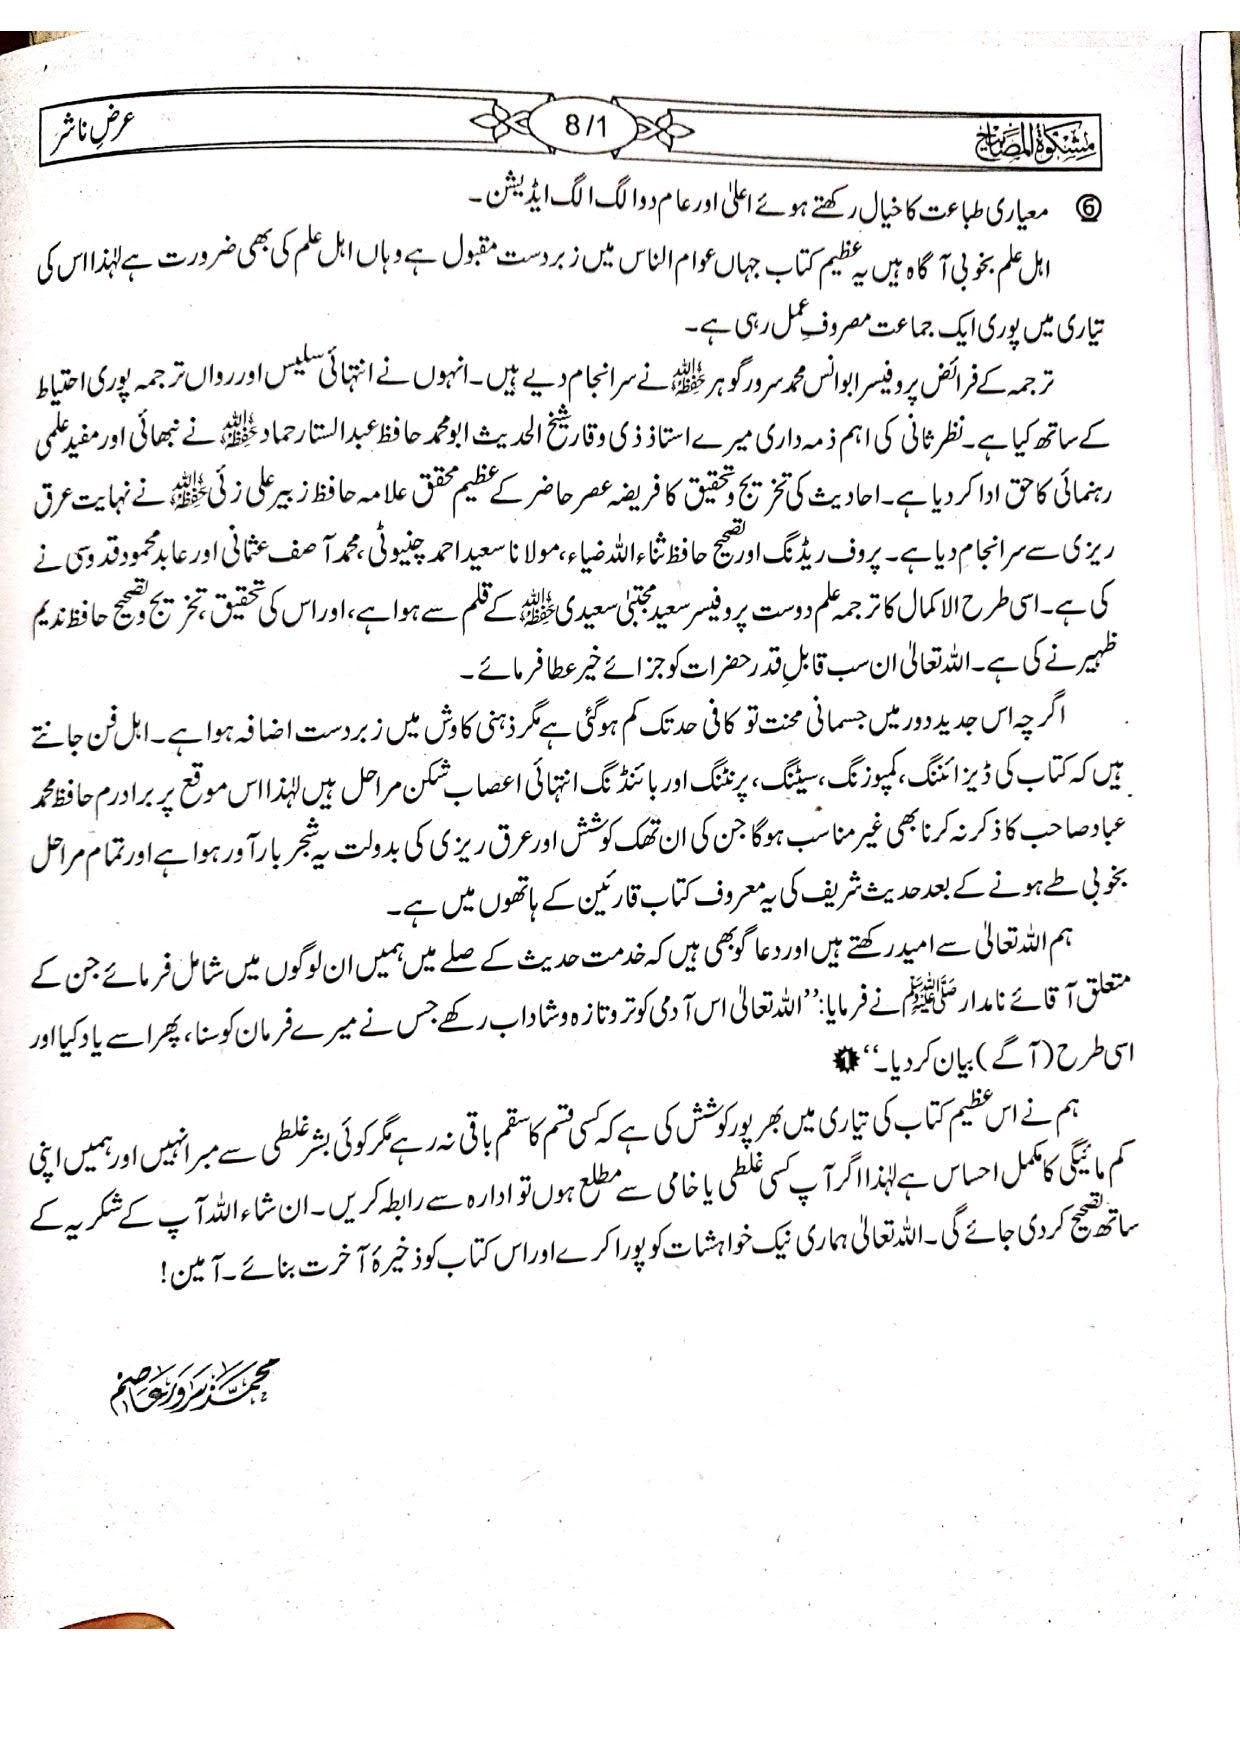 مشکوٰۃ المصابیح 8/1 عرضِ ناشر
⑥ معیاری طباعت کا خیال رکھتے ہوئے اعلیٰ اور عام دو الگ الگ ایڈیشن۔
اہل علم بخوبی آگاہ ہیں یہ عظیم کتاب جہاں عوام الناس میں زبردست مقبول ہے وہاں اہل علم کی بھی ضرورت ہے لہٰذا اس کی
تیاری میں پوری ایک جماعت مصروفِ عمل رہی ہے۔
ترجمہ کے فرائض پروفیسر ابو انس محمد سرور گوہر حفظہ اللہ نے سرانجام دیے ہیں۔ انہوں نے انتہائی سلیس اور رواں ترجمہ پوری احتیاط
کے ساتھ کیا ہے۔ نظر ثانی کی اہم ذمہ داری میرے استاذ ذی وقار شیخ الحدیث ابو محمد حافظ عبدالستار حماد حفظہ اللہ نے نبھائی اور مفید علمی
رہنمائی کا حق ادا کر دیا ہے۔ احادیث کی تخریج و تحقیق کا فریضہ عصر حاضر کے عظیم محقق علامہ حافظ زبیر علی زئی حفظہ اللہ نے نہایت عرق
ریزی سے سرانجام دیا ہے۔ پروف ریڈنگ اور تصحیح حافظ ثناء اللہ ضیاء، مولانا سعید احمد چنیوٹی، محمد آصف عثمانی اور عابد محمود قدوسی نے
کی ہے۔ اسی طرح الاکمال کا ترجمہ علم دوست پروفیسر سعید مجتبیٰ سعیدی حفظہ اللہ کے قلم سے ہوا ہے، اور اس کی تحقیق، تخریج و تصحیح حافظ ندیم
ظہیر نے کی ہے۔ اللہ تعالیٰ ان سب قابلِ قدر حضرات کو جزائے خیر عطا فرمائے۔
اگرچہ اس جدید دور میں جسمانی محنت تو کافی حد تک کم ہو گئی ہے مگر ذہنی کاوش میں زبردست اضافہ ہوا ہے۔ اہل فن جانتے
ہیں کہ کتاب کی ڈیزائننگ، کمپوزنگ، سیٹنگ، پرنٹنگ اور بائنڈنگ انتہائی اعصاب شکن مراحل ہیں لہٰذا اس موقع پر برادرم حافظ محمد
عباد صاحب کا ذکر نہ کرنا بھی غیر مناسب ہوگا جن کی ان تھک کوشش اور عرق ریزی کی بدولت یہ شجر بار آور ہوا ہے اور تمام مراحل
بخوبی طے ہونے کے بعد حدیث شریف کی یہ معروف کتاب قارئین کے ہاتھوں میں ہے۔
ہم اللہ تعالیٰ سے امید رکھتے ہیں اور دعا گو بھی ہیں کہ خدمت حدیث کے صلے میں ہمیں ان لوگوں میں شامل فرمائے جن کے
متعلق آقائے نامدار ﷺ نے فرمایا: ’’اللہ تعالیٰ اس آدمی کو تر و تازہ و شاداب رکھے جس نے میرے فرمان کو سنا، پھر اسے یاد کیا اور
اسی طرح (آگے) بیان کر دیا۔‘‘ ❶
ہم نے اس عظیم کتاب کی تیاری میں بھر پور کوشش کی ہے کہ کسی قسم کا سقم باقی نہ رہے مگر کوئی بشر غلطی سے مبرا نہیں اور ہمیں اپنی
کم مائیگی کا مکمل احساس ہے لہٰذا اگر آپ کسی غلطی یا خامی سے مطلع ہوں تو ادارہ سے رابطہ کریں۔ ان شاء اللہ آپ کے شکریہ کے
ساتھ تصحیح کر دی جائے گی۔ اللہ تعالیٰ ہماری نیک خواہشات کو پورا کرے اور اس کتاب کو ذخیرۂ آخرت بنائے۔ آمین!
محمد سرور عاصم